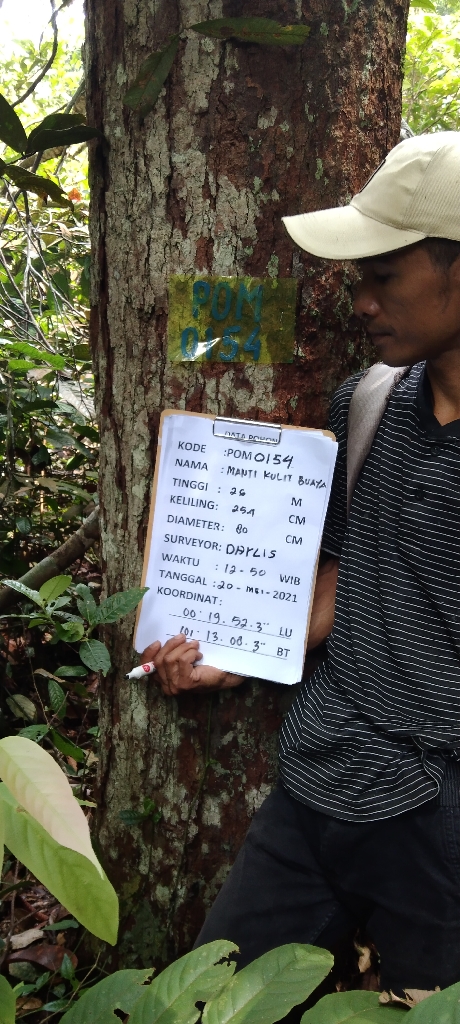 POM
0154
DATA POHON
KODE : POM 0154
NAMA : MANTI KULIT BUAYA
TINGGI : 26 M
KELILING: 251 CM
DIAMETER: 80 CM
SURVEYOR: DAYLIS
WAKTU : 12-50 WIB
TANGGAL : 20-MEI-2021
KOORDINAT:
00. 19. 52.3" LU
101. 13. 08.3" BT